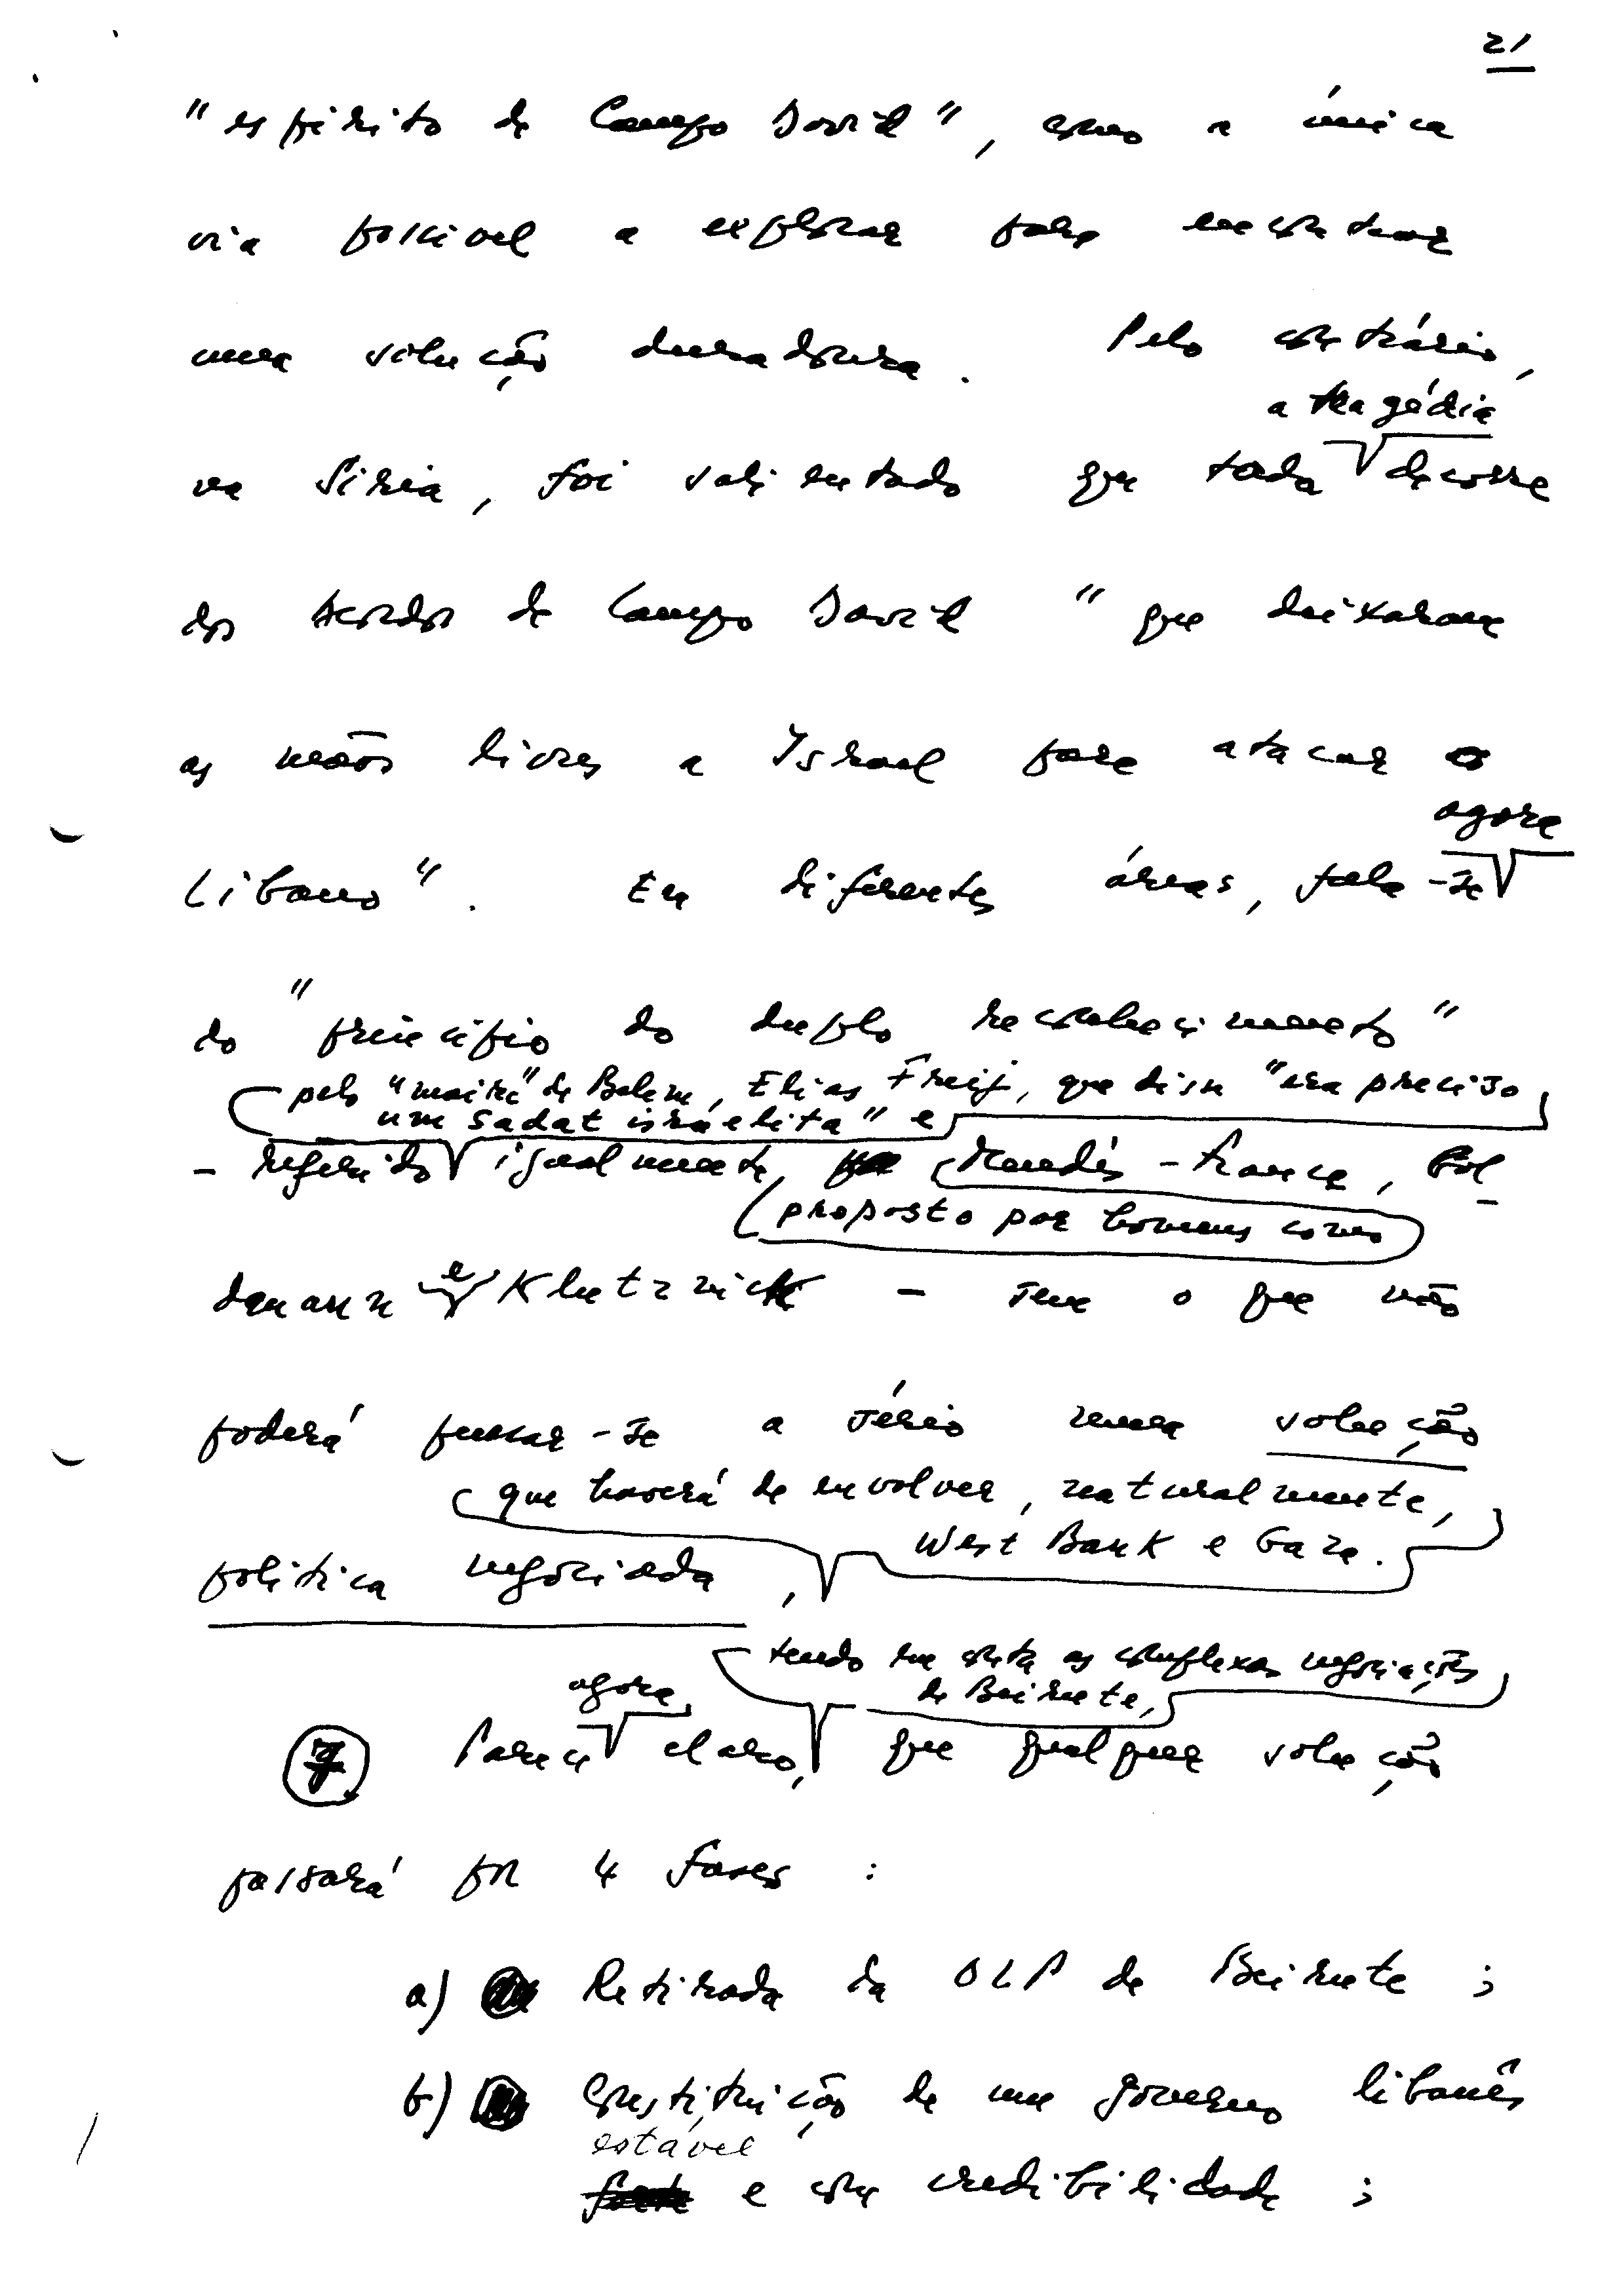 21
"espírito de Campo David", como a única
via possível a explorar para encontrar
uma solução duradoura. Pelo contrário,
a tragédia
na Síria, foi salientado que toda decorre
dos Acordos de Campo David "que deixaram
as mãos livres a Israel para atacar o
agora
Líbano". Em diferentes áreas, fala-se
do "princípio do duplo reconhecimento"
pelo "maire" de Belém, Elias Freij, que disse "era preciso
um Sadat israelita" e
- referido igualmente, Mendès-France, Gol-
proposto por homens como
dmann e Klutznick - sem o que não
poderá pensar-se a sério numa solução
que haverá de envolver, naturalmente,
West Bank e Gaza.
política negociada,
tendo em conta as complexas negociações
agora, de Beirute,
7 Parece claro, que qualquer solução
passará por 4 fases:
a) Retirada da OLP de Beirute;
b) Constituição de um governo libanês
estável
forte e com credibilidade;